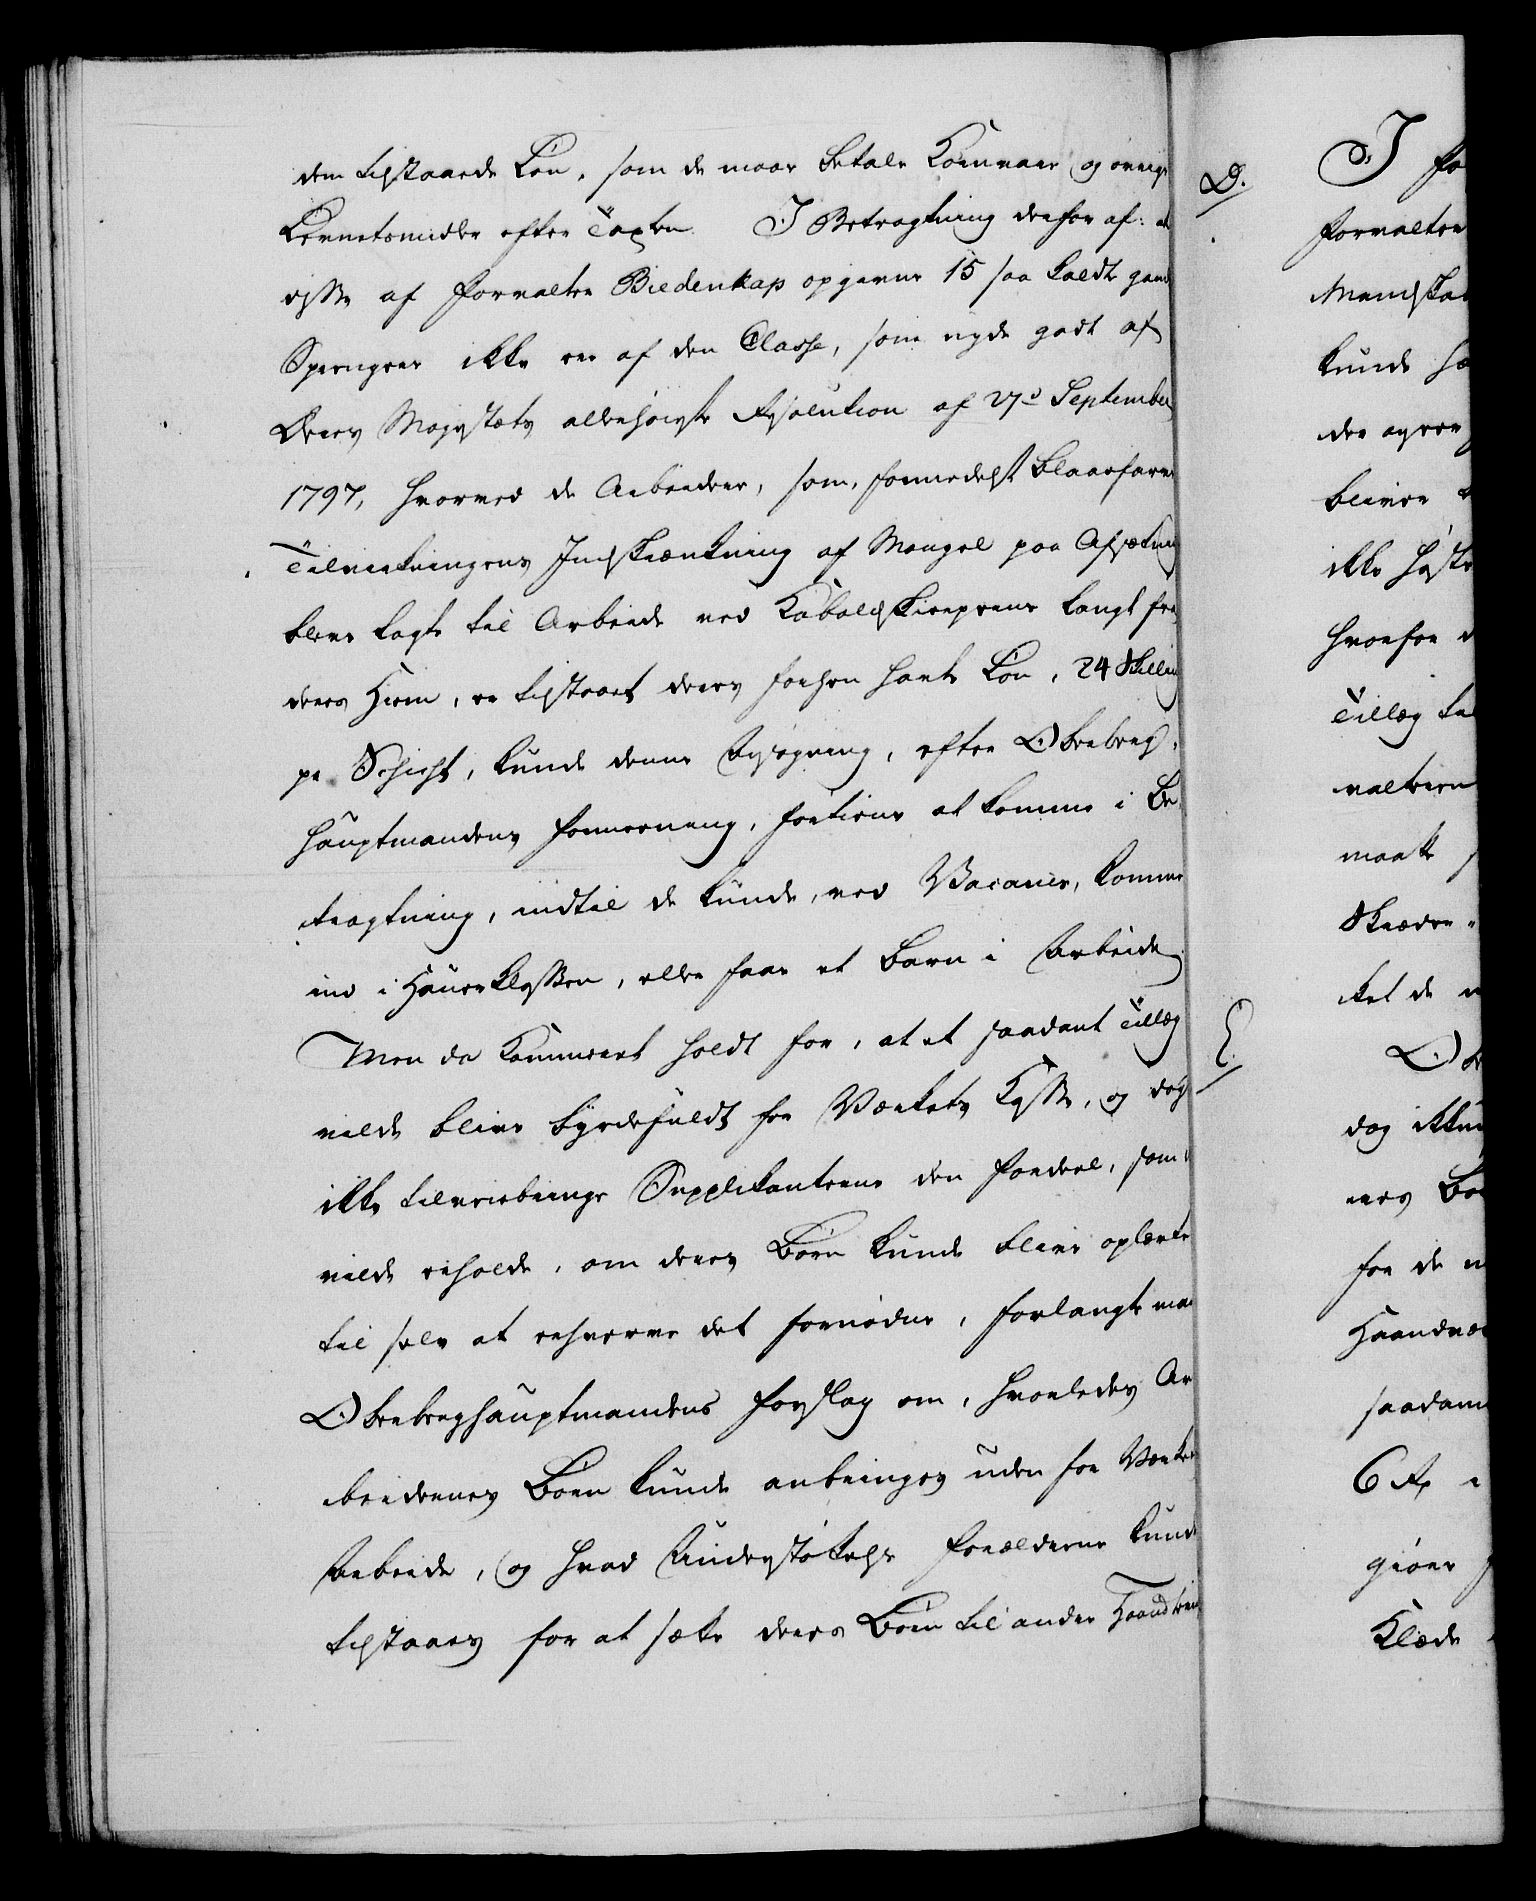 dem tilstaaede Løn, som de maae betale Kornvare og øvrige
Levnetsmidler efter Taxten. I Betragtning derfor af: at
disse af Forvalter Biedenkap opgivne 15 saa kaldte gamle
Sprengere ikke ere af den Classe, som nyde godt af
Deres Majestæts allerhøieste Resolution af 27d September
1797, hvorved de Arbeidere, som, formedelst Blaaefarve
Tilvirkningens Indskrænkning af Mangel paa Afsætning
bleve lagte til Arbeide ved Kaboldskierperne langt fra
deres Hiem, er tilstaaet deres forhen havte Løn, 24 Skilling
pr Schicht, kunde denne Ansøgning, efter Oberberg-
hauptmandens Formeening, fortiene at komme i Be-
tragtning, indtil de kunde, ved Vacance, komme
ind i Hauerklassen, eller faae et Barn i Arbeide.
Men da Kammeret holdt for, at et saadant Tillæg
vilde blive byrdefuldt for Værkets Kasse, og dog
ikke tilveiebringe Supplikanterne den Fordeel, som de
vilde erholde, om deres Børn kunde blive oplærte
til selv at erhverve det fornødne, forlangte man
Oberberghauptmandens Forslag om, hvorledes Ar-
beidernes Børn kunde anbringes uden for Værkets
Arbeide, og hvad Understøttelse Forældrene kunde
tilstaaes for at sætte deres Børn til andre Haandtering
D.
I For
Forvalter
Mandskab
kunde
der
bliver
ikke
hvorfor
Tillæg til
valteren
maatte
Skræder
ket de
E.
dog ikkun
eres Bø
for de
Haandvær
saadan
6 Rd
giøre
Klæde